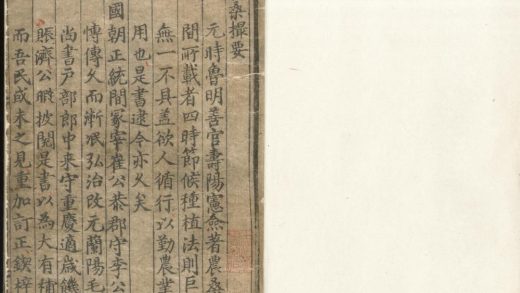 桑撮要
元時魯明善官壽陽憲僉著農桑
間所載者四時節候種植法則巨
無一不具盖欲人循行以勤農業
用也是書逮今亦乆矣
國朝正統間冢宰崔公恭郡守李公
慱傳乆而漸泯弘治改元蘭陽毛
尚書戸部郎中来守重慶適歲饑
賑濟公暇披閱是書以為大有
而吾民或未之見重加訂正鍥梓